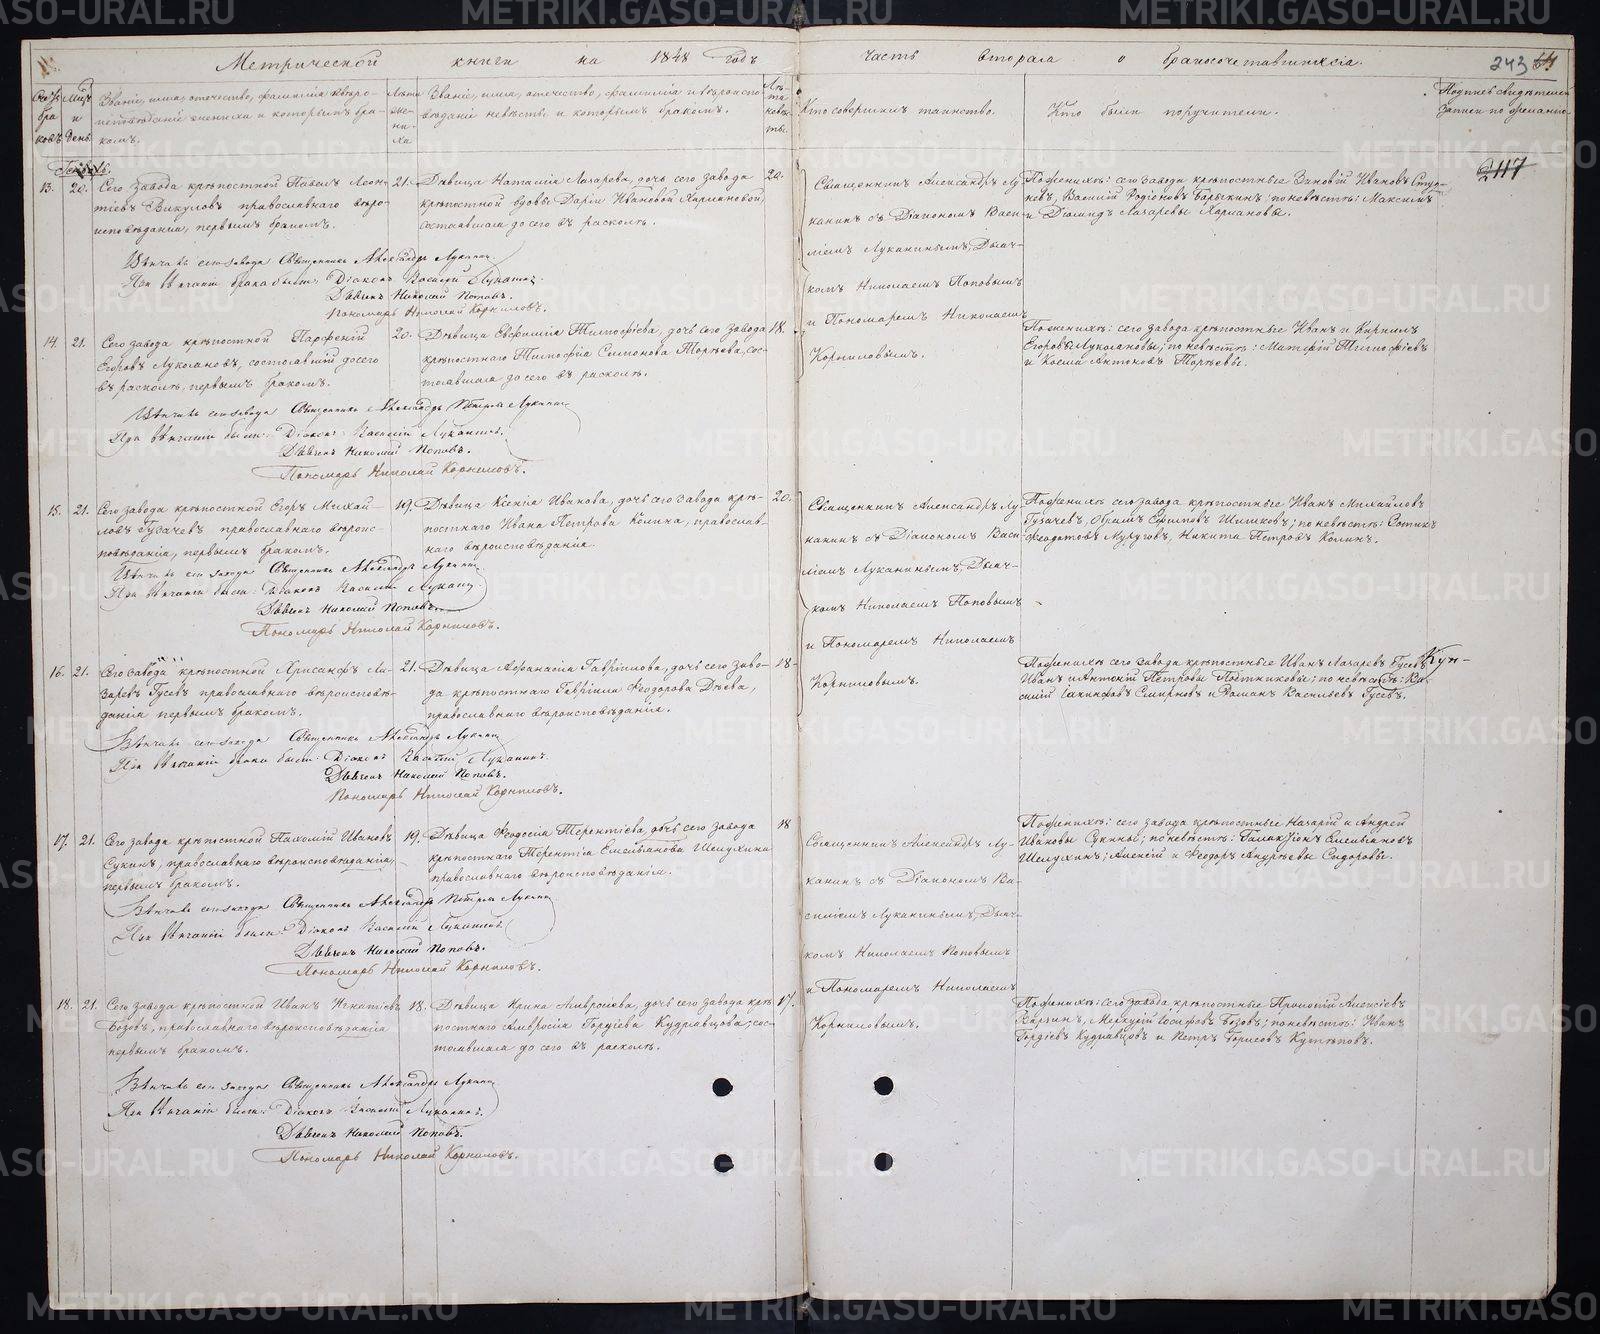 Метрической книги на 1848 годъ часть вторая о бракосочетавшихся.
243
Мѣсяцъ и день.
Званіе, имя, отечество, фамилія и вѣроисповѣданіе жениха и которымъ бракомъ.
Лѣта жениха
Званіе, имя, отечество, фамилія и вѣроисповѣданіе невѣсты и которымъ бракомъ.
Лѣта невѣсты.
Кто совершилъ таинство.
Кто были поручители.
Подпись свидѣтелей записи по желанію.
Генварь.
247
13. 20.
Сего завода крѣпостной Павелъ Леон-
тіевъ Викуловъ православнаго вѣро-
исповѣданія, первымъ бракомъ.
21.
Дѣвица Наталія Лазарева, дочь сего завода
крѣпостной вдовы Даріи Ивановой Харлановой,
состоявшая до сего въ расколѣ.
20.
Священникъ Александръ Лу-
канинъ съ Діакономъ Васи-
ліемъ Луканинымъ, Дьяч-
комъ Николаемъ Поповымъ
и Пономаремъ Николаемъ
Корниловымъ.
По женихѣ: сего завода крѣпостные Зиновій Ивановъ
Василій Родіоновъ Барыкинъ; по невѣстѣ: Максимъ
и Діомидъ Лазаревы Харлановы.
Вѣнчалъ сего завода Священникъ Александръ Луканинъ
При вѣнчаніи брака были: Діаконъ Василій Луканинъ.
Дьячекъ Николай Поповъ.
Пономарь Николай Корниловъ.
14. 21.
Сего завода крѣпостной Парфеній
Егоровъ Лукмановъ, состоявшій до сего
въ расколѣ, первымъ бракомъ.
20.
Дѣвица Евфимія Тимофіева, дочь сего завода
крѣпостнаго Тимофія Симонова Торѣева, сос-
тоявшая до сего въ расколѣ.
18.
По женихѣ: сего завода крѣпостные Иванъ и Кирилъ
Егоровы; по невѣстѣ: Матфій Тимофіевъ
и Козма Антоновъ Торѣевы.
Вѣнчалъ сего завода Священникъ Александръ Петровъ Луканинъ
При вѣнчаніи были: Діаконъ Василій Луканинъ.
Дьячекъ Николай Поповъ.
Пономарь Николай Корниловъ.
15. 21.
Сего завода крѣпостной Егоръ Михай-
ловъ Гузачевъ православнаго вѣроис-
повѣданія, первымъ бракомъ.
19.
Дѣвица Ксенія Иванова, дочь сего завода крѣ-
постнаго Ивана Петрова Колина, православ-
наго вѣроисповѣданія.
20.
Священникъ Александръ Лу-
канинъ съ Діакономъ Васи-
ліемъ Луканинымъ, Дьяч-
комъ Николаемъ Поповымъ
и Пономаремъ Николаемъ
Корниловымъ.
По женихѣ сего завода крѣпостные Иванъ Михайловъ
Гузачевъ, Ефимовъ Шишковъ; по невѣстѣ:
Федотовъ Никита Петровъ Колинъ.
Вѣнчалъ сего завода Священникъ Александръ Луканинъ
При вѣнчаніи были: Діаконъ Василій Луканинъ
Дьячекъ Николай Поповъ.
Пономарь Николай Корниловъ.
16. 21.
Сего завода крѣпостной Хрисанфъ Ла-
заревъ Гусевъ православнаго вѣроисповѣ-
данія первымъ бракомъ.
21.
Дѣвица Афанасія Гавріилова, дочь сего заво-
да крѣпостнаго Гавріила Феодорова Дѣева,
православнаго вѣроисповѣданія.
18.
По женихѣ сего завода крѣпостные Иванъ Лазаревъ Гусевъ
Иванъ и Антоній Петровы Плотниковы; по невѣстѣ: Ва-
силій Іакинфовъ Смирновъ и Романъ Васильевъ Гусевъ.
Вѣнчалъ сего завода Священникъ Александръ Луканинъ
При вѣнчаніи брака были: Діаконъ Василій Луканинъ.
Дьячекъ Николай Поповъ.
Пономарь Николай Корниловъ.
17. 21.
Сего завода крѣпостной Пахомій Ивановъ
Сукинъ, православнаго вѣроисповѣданія,
первымъ бракомъ.
19.
Дѣвица Феодосія Терентіева, дочь сего завода
крѣпостнаго Терентія Емельянова Шелухина
православнаго вѣроисповѣданія.
18
Священникъ Александръ Лу-
канинъ съ Діакономъ Ва-
силіемъ Луканинымъ, Дьяч-
комъ Николаемъ Поповымъ
и Пономаремъ Николаемъ
Корниловымъ.
По женихѣ: сего завода крѣпостные Назарій и Андрей
Ивановы Сукины; по невѣстѣ: Галактіонъ Емельяновъ
Шелухинъ; Алексій и Феодоръ Андреевы Сидоровы.
Вѣнчалъ сего завода Священникъ Александръ Петровъ Луканинъ
При вѣнчаніи были: Діаконъ Василій Луканинъ.
Дьячекъ Николай Поповъ.
Пономарь Николай Корниловъ.
18. 21.
Сего завода крѣпостной Иванъ Игнатіевъ
Бозовъ, православнаго вѣроисповѣданія
первымъ бракомъ.
18.
Дѣвица Ирина Амвросіева, дочь сего завода крѣ-
постнаго Амвросія Гордіева Кудрявцова, сос-
тоявшая до сего въ расколѣ.
17.
По женихѣ: сего завода крѣпостные Прокопій Алексіевъ
Іосифовъ Бозовъ; по невѣстѣ: Иванъ
Гордіевъ Кудрявцовъ и Петръ Борисовъ
Вѣнчалъ сего завода Священникъ Александръ Луканинъ
При вѣнчаніи были: Діаконъ Василій Луканинъ.
Дьячекъ Николай Поповъ.
Пономарь Николай Корниловъ.
METRIKI.GASO-URAL.RU